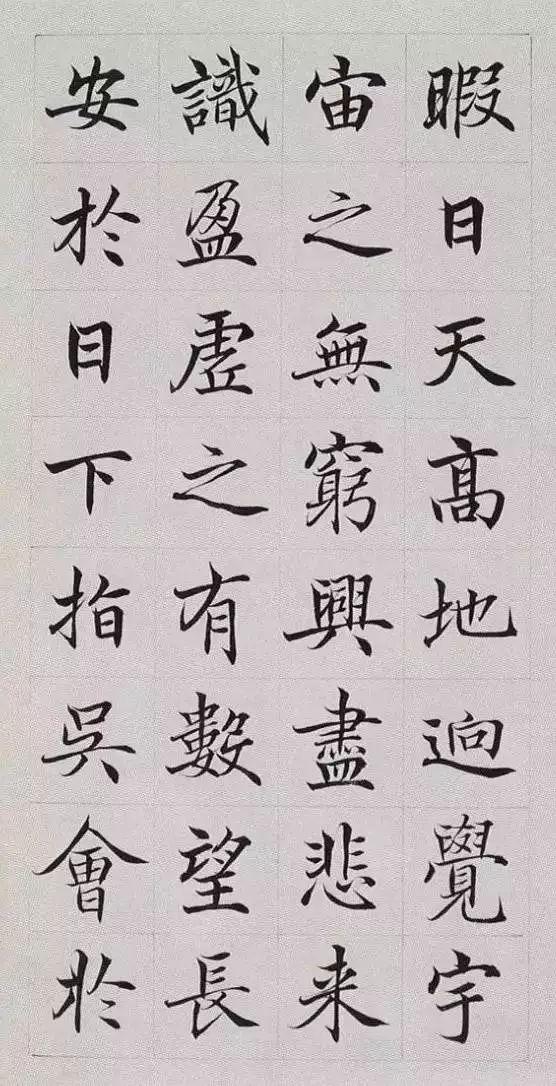 暇日天高地迥覺宇
宙之無窮興盡悲来
識盈虛之有數望長
安於日下指吳會於